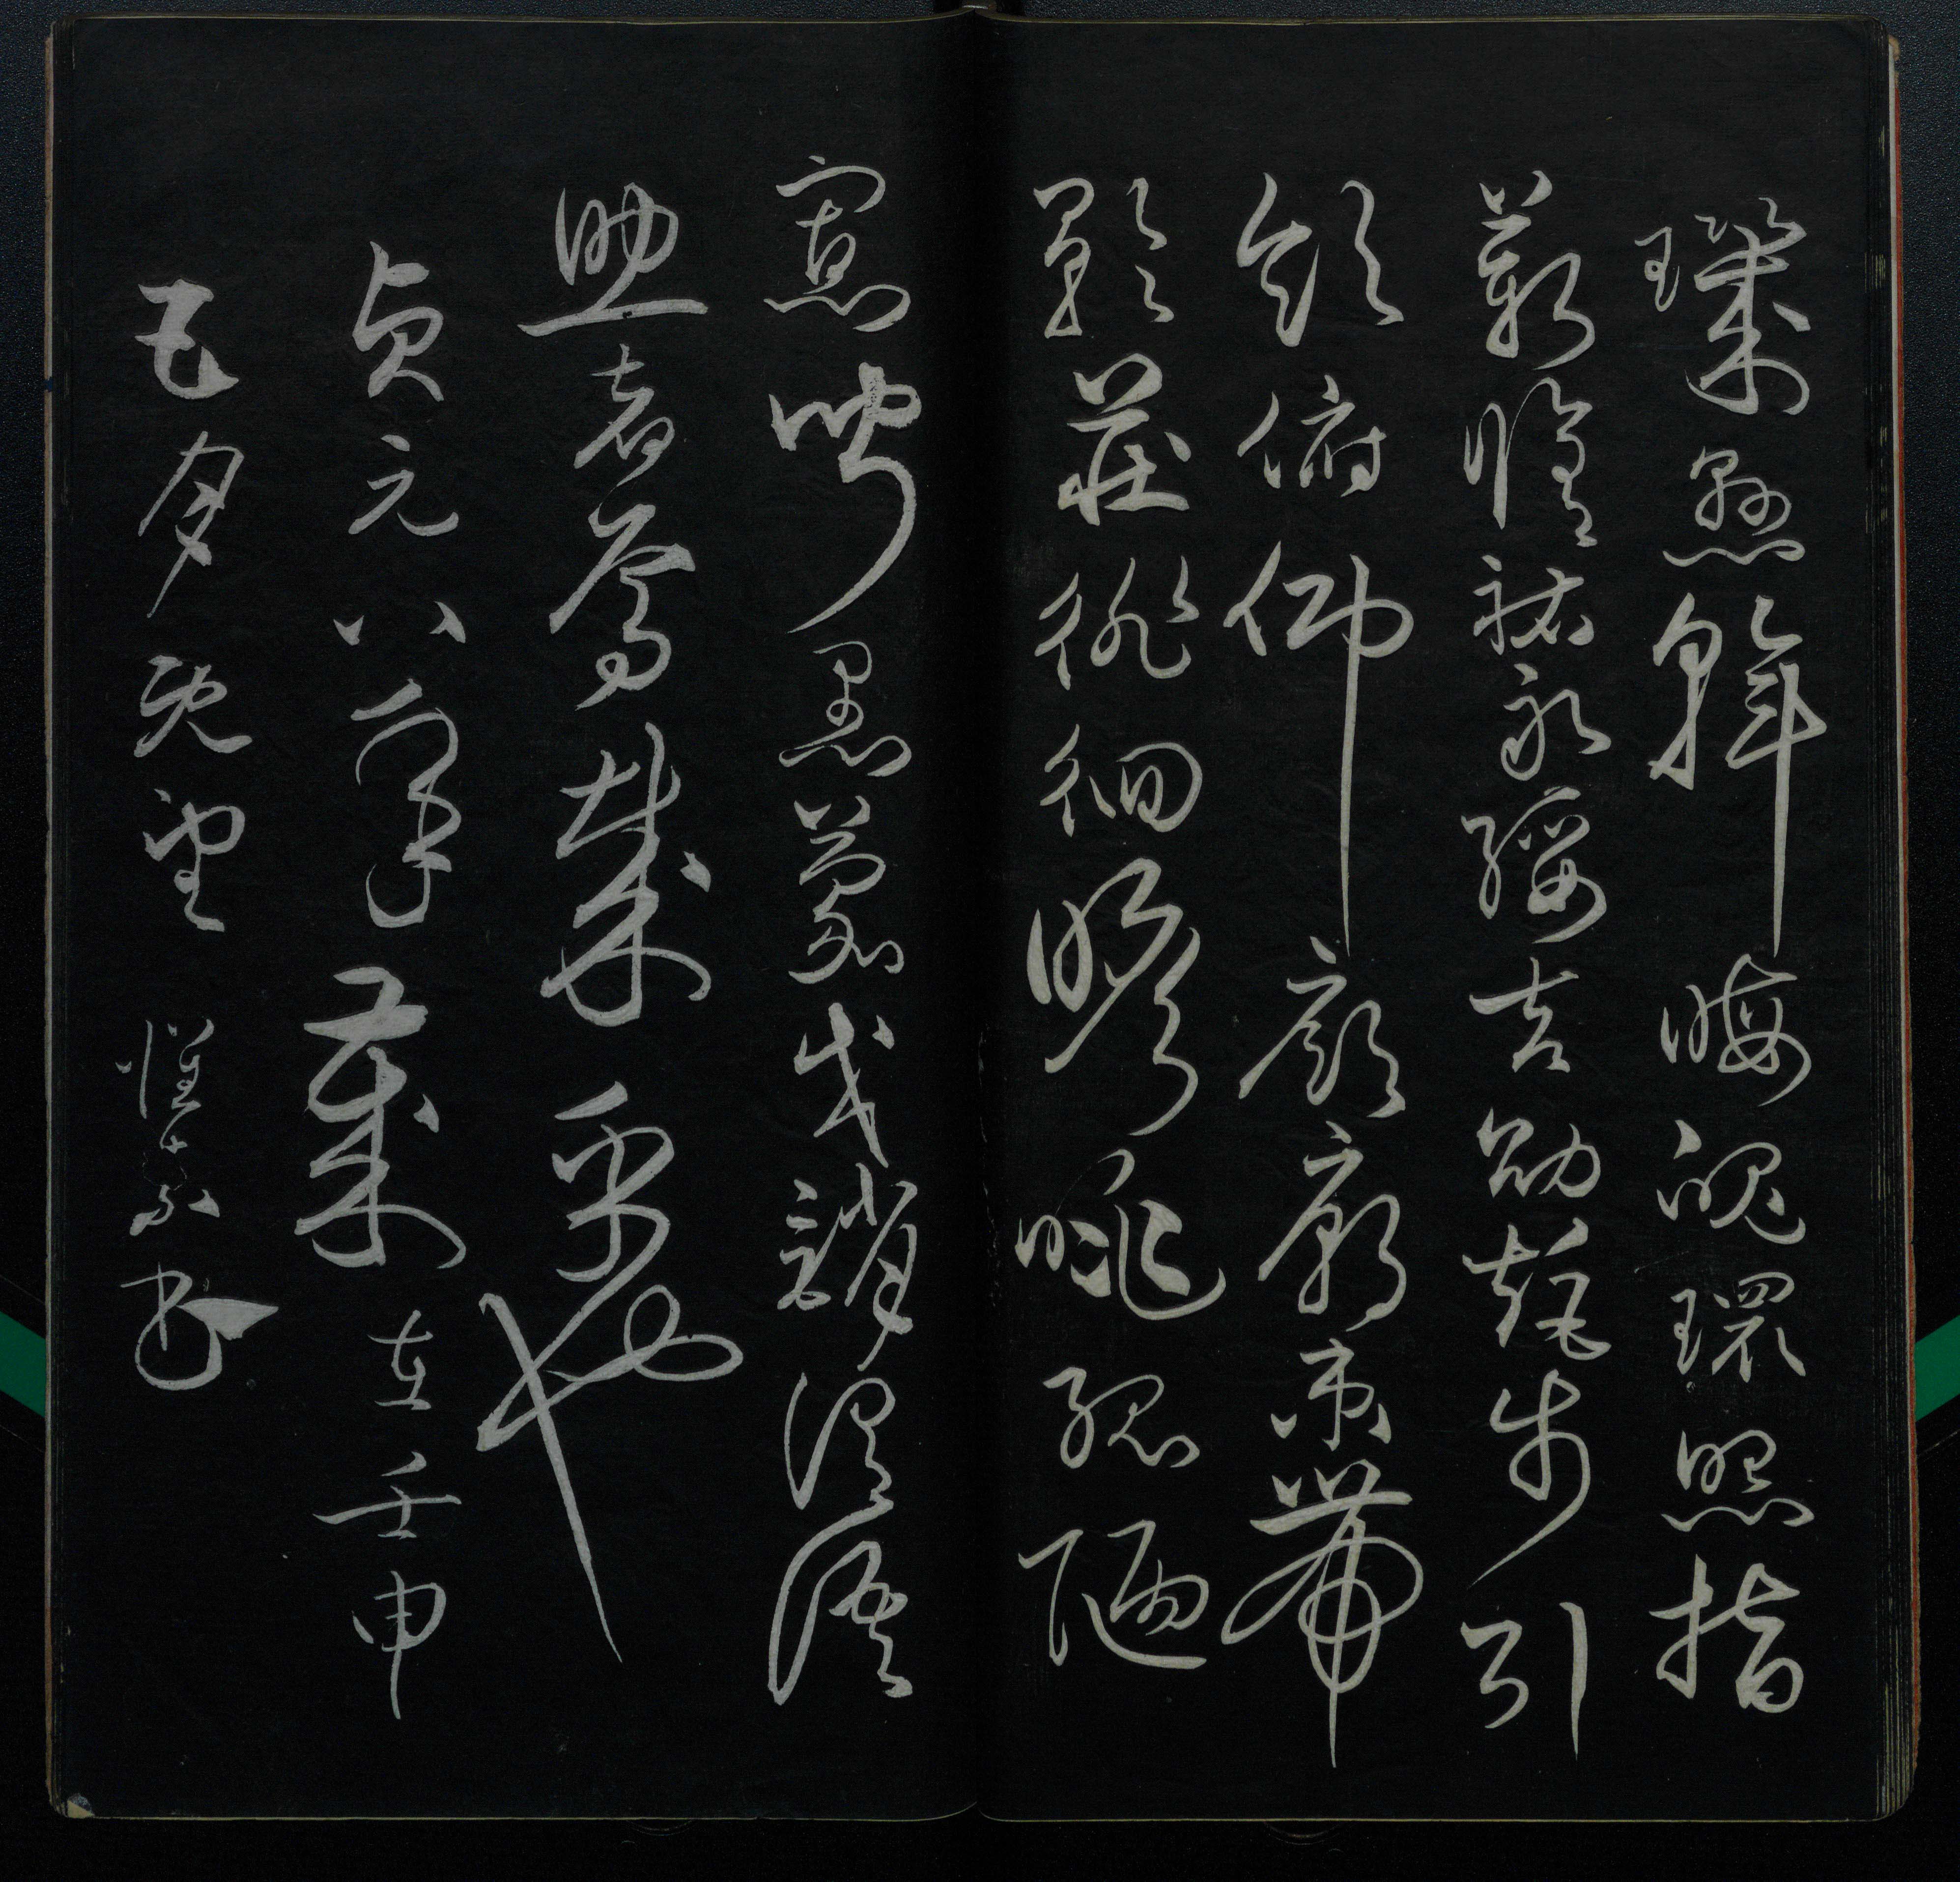 璣懸斡晦魄環照指
薪脩祜永綏吉劭矩步引
領俯仰廊廟束帶
矜莊徘徊瞻眺孤陋
寡聞愚蒙等誚謂語
助者焉哉乎也
貞元八年歲在壬申
五月既望懷素書